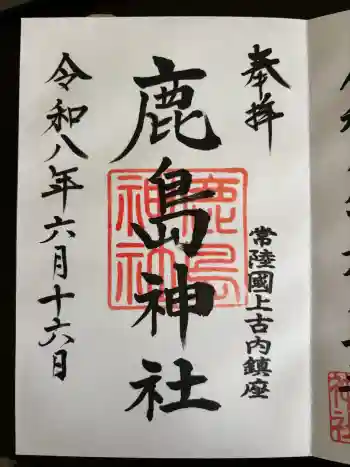 奉拝
常陸國上古内鎮座
鹿島神社
鹿島神社
令和八年六月十六日
神社